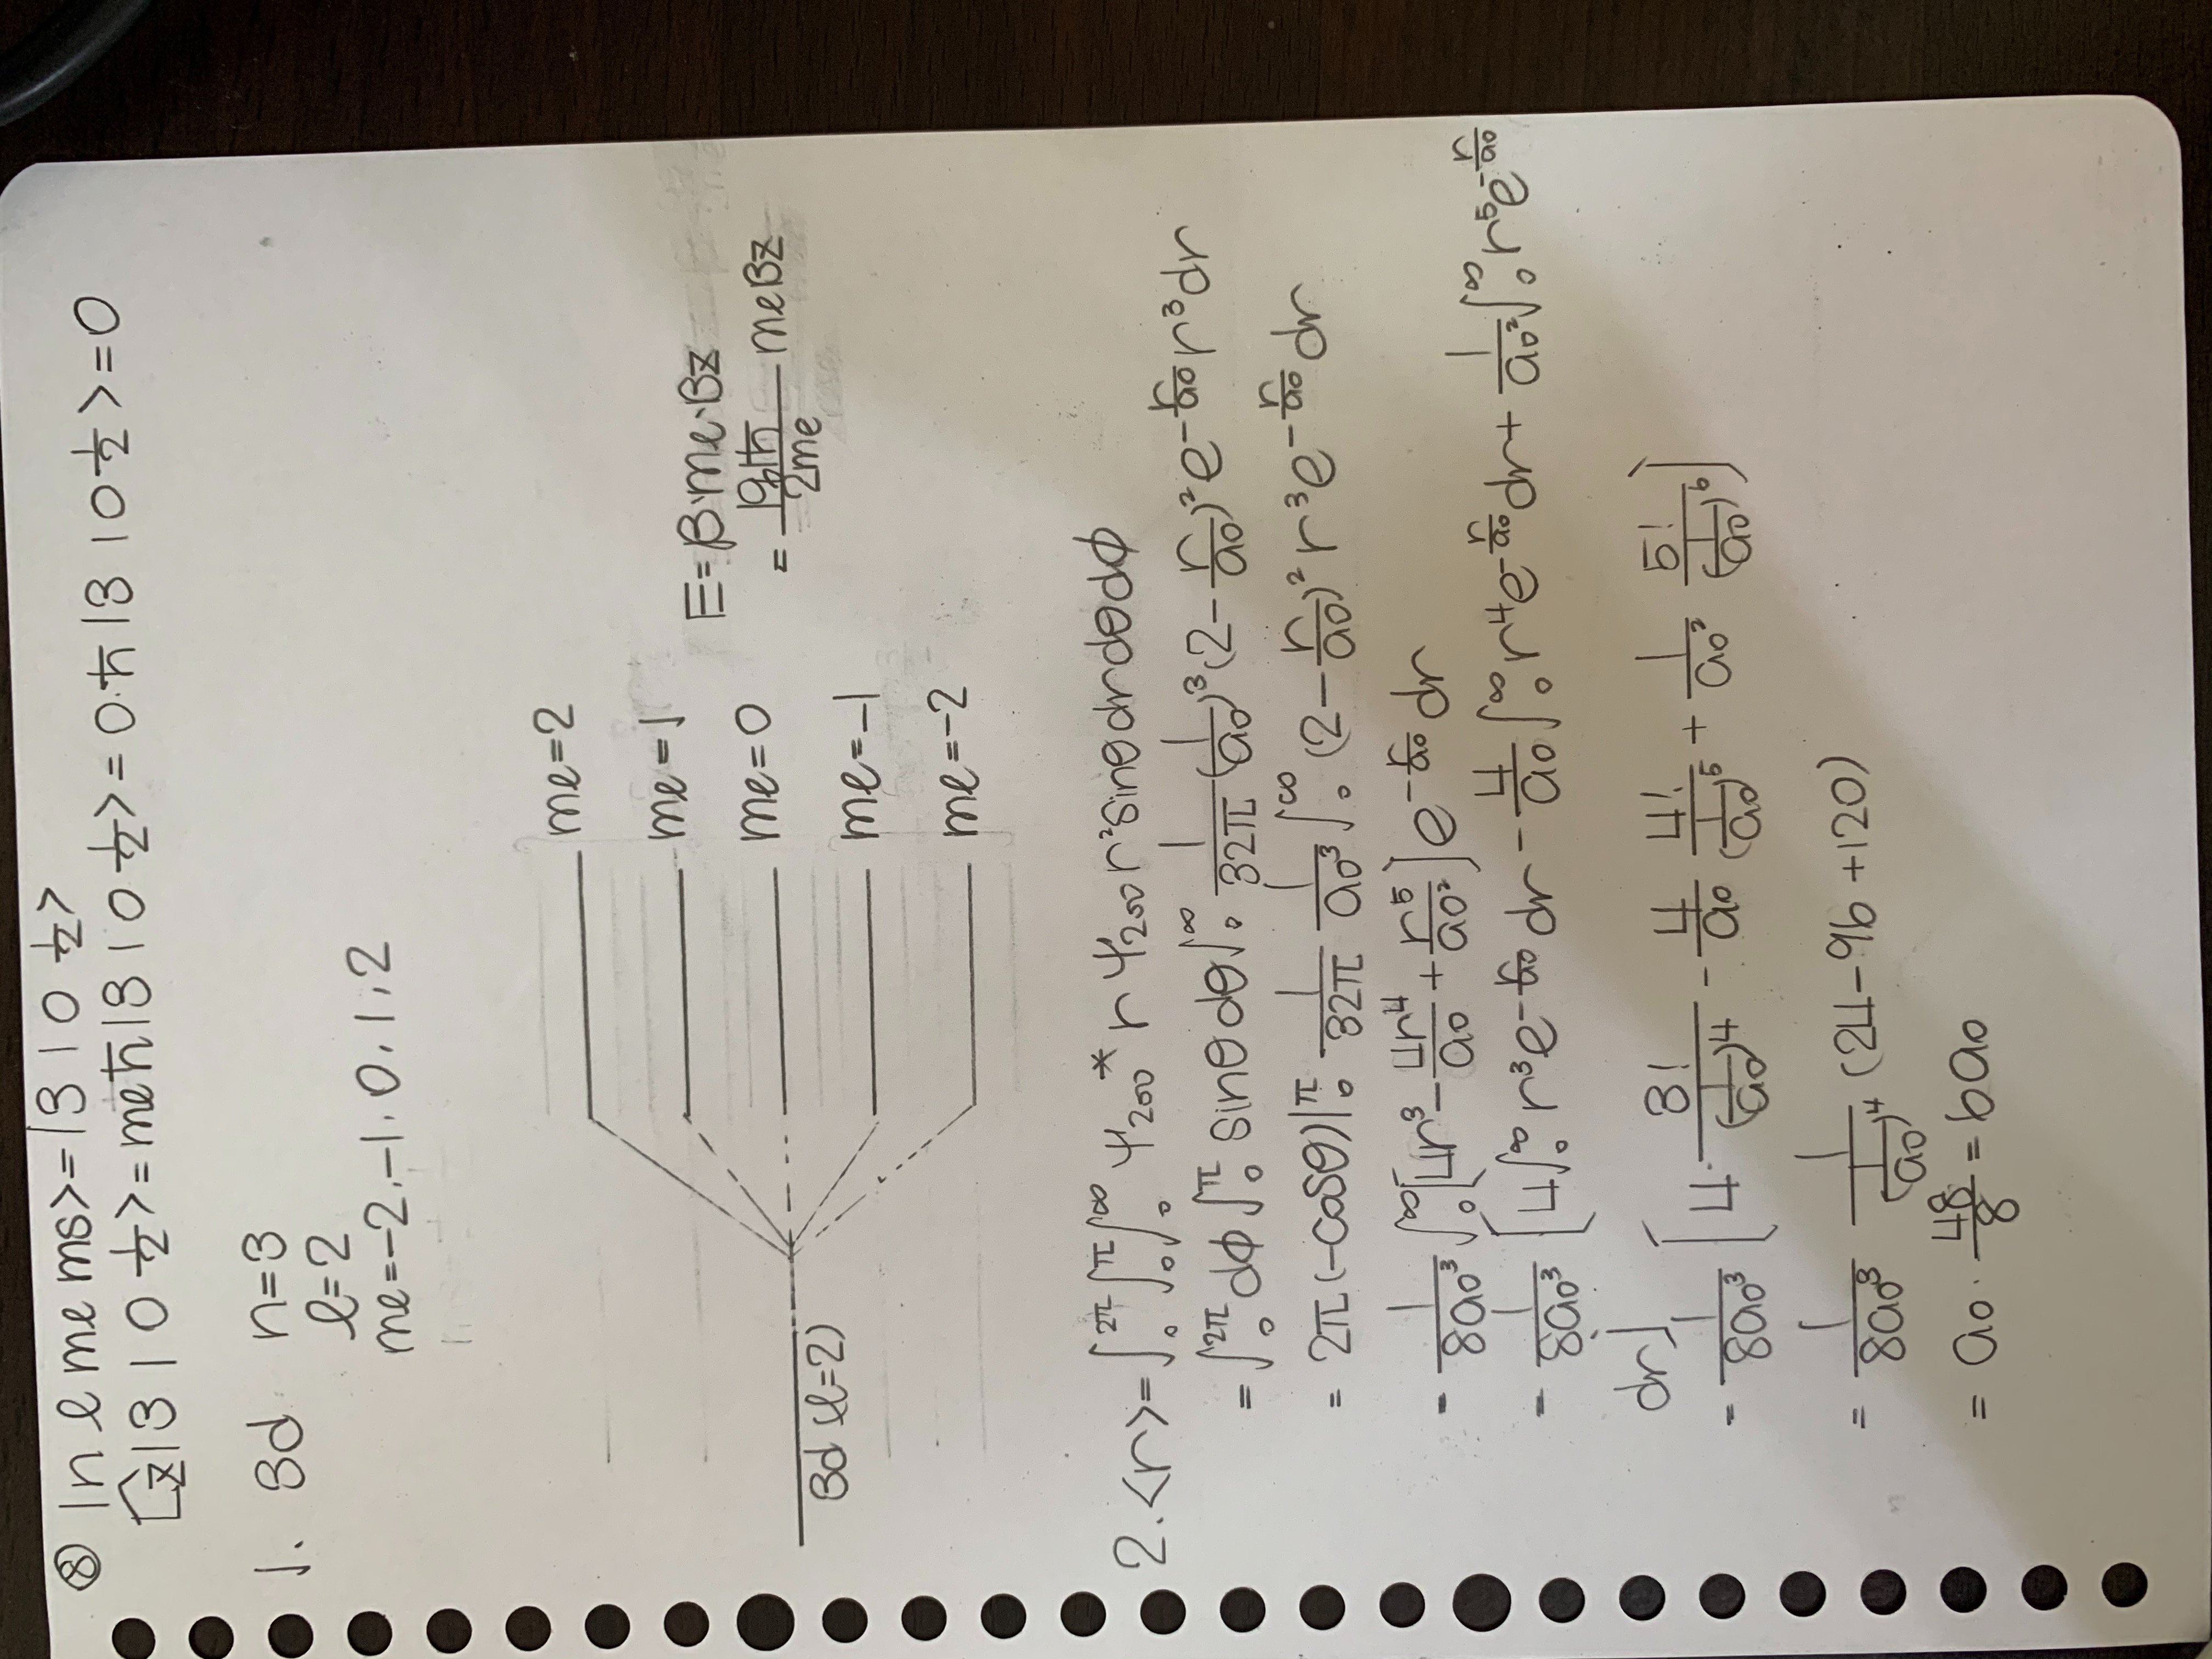 ⑧ |n ℓ mℓ ms> = |3 1 0 1/2>
L̂z|3 1 0 1/2> = mℓħ|3 1 0 1/2> = 0·ħ |3 1 0 1/2> = 0
1. 3d n=3
ℓ=2
mℓ=-2, -1, 0, 1, 2
mℓ=2
mℓ=1
mℓ=0
mℓ=-1
mℓ=-2
3d (ℓ=2)
E=β·mℓ·Bz
= |q|ħ/2me mℓBz
2. <r> = ∫₀^2π ∫₀^π ∫₀^∞ ψ₂₀₀* r ψ₂₀₀ r² sinθ dr dθ dϕ
= ∫₀^2π dϕ ∫₀^π sinθ dθ ∫₀^∞ 1/32π (1/a₀)³ (2 - r/a₀)² e^(-r/a₀) r³ dr
= 2π (-cosθ)|₀^π 1/32π 1/a₀³ ∫₀^∞ (2 - r/a₀)² r³ e^(-r/a₀) dr
= 1/8a₀³ ∫₀^∞ [4r³ - 4r⁴/a₀ + r⁵/a₀²] e^(-r/a₀) dr
= 1/8a₀³ [4∫₀^∞ r³ e^(-r/a₀) dr - 4/a₀ ∫₀^∞ r⁴ e^(-r/a₀) dr + 1/a₀² ∫₀^∞ r⁵ e^(-r/a₀)
dr]
= 1/8a₀³ [4· 3!/(1/a₀)⁴ - 4/a₀ 4!/(1/a₀)⁵ + 1/a₀² 5!/(1/a₀)⁶]
= 1/8a₀³ 1/(1/a₀)⁴ (24 - 96 + 120)
= a₀ · 48/8 = 6a₀